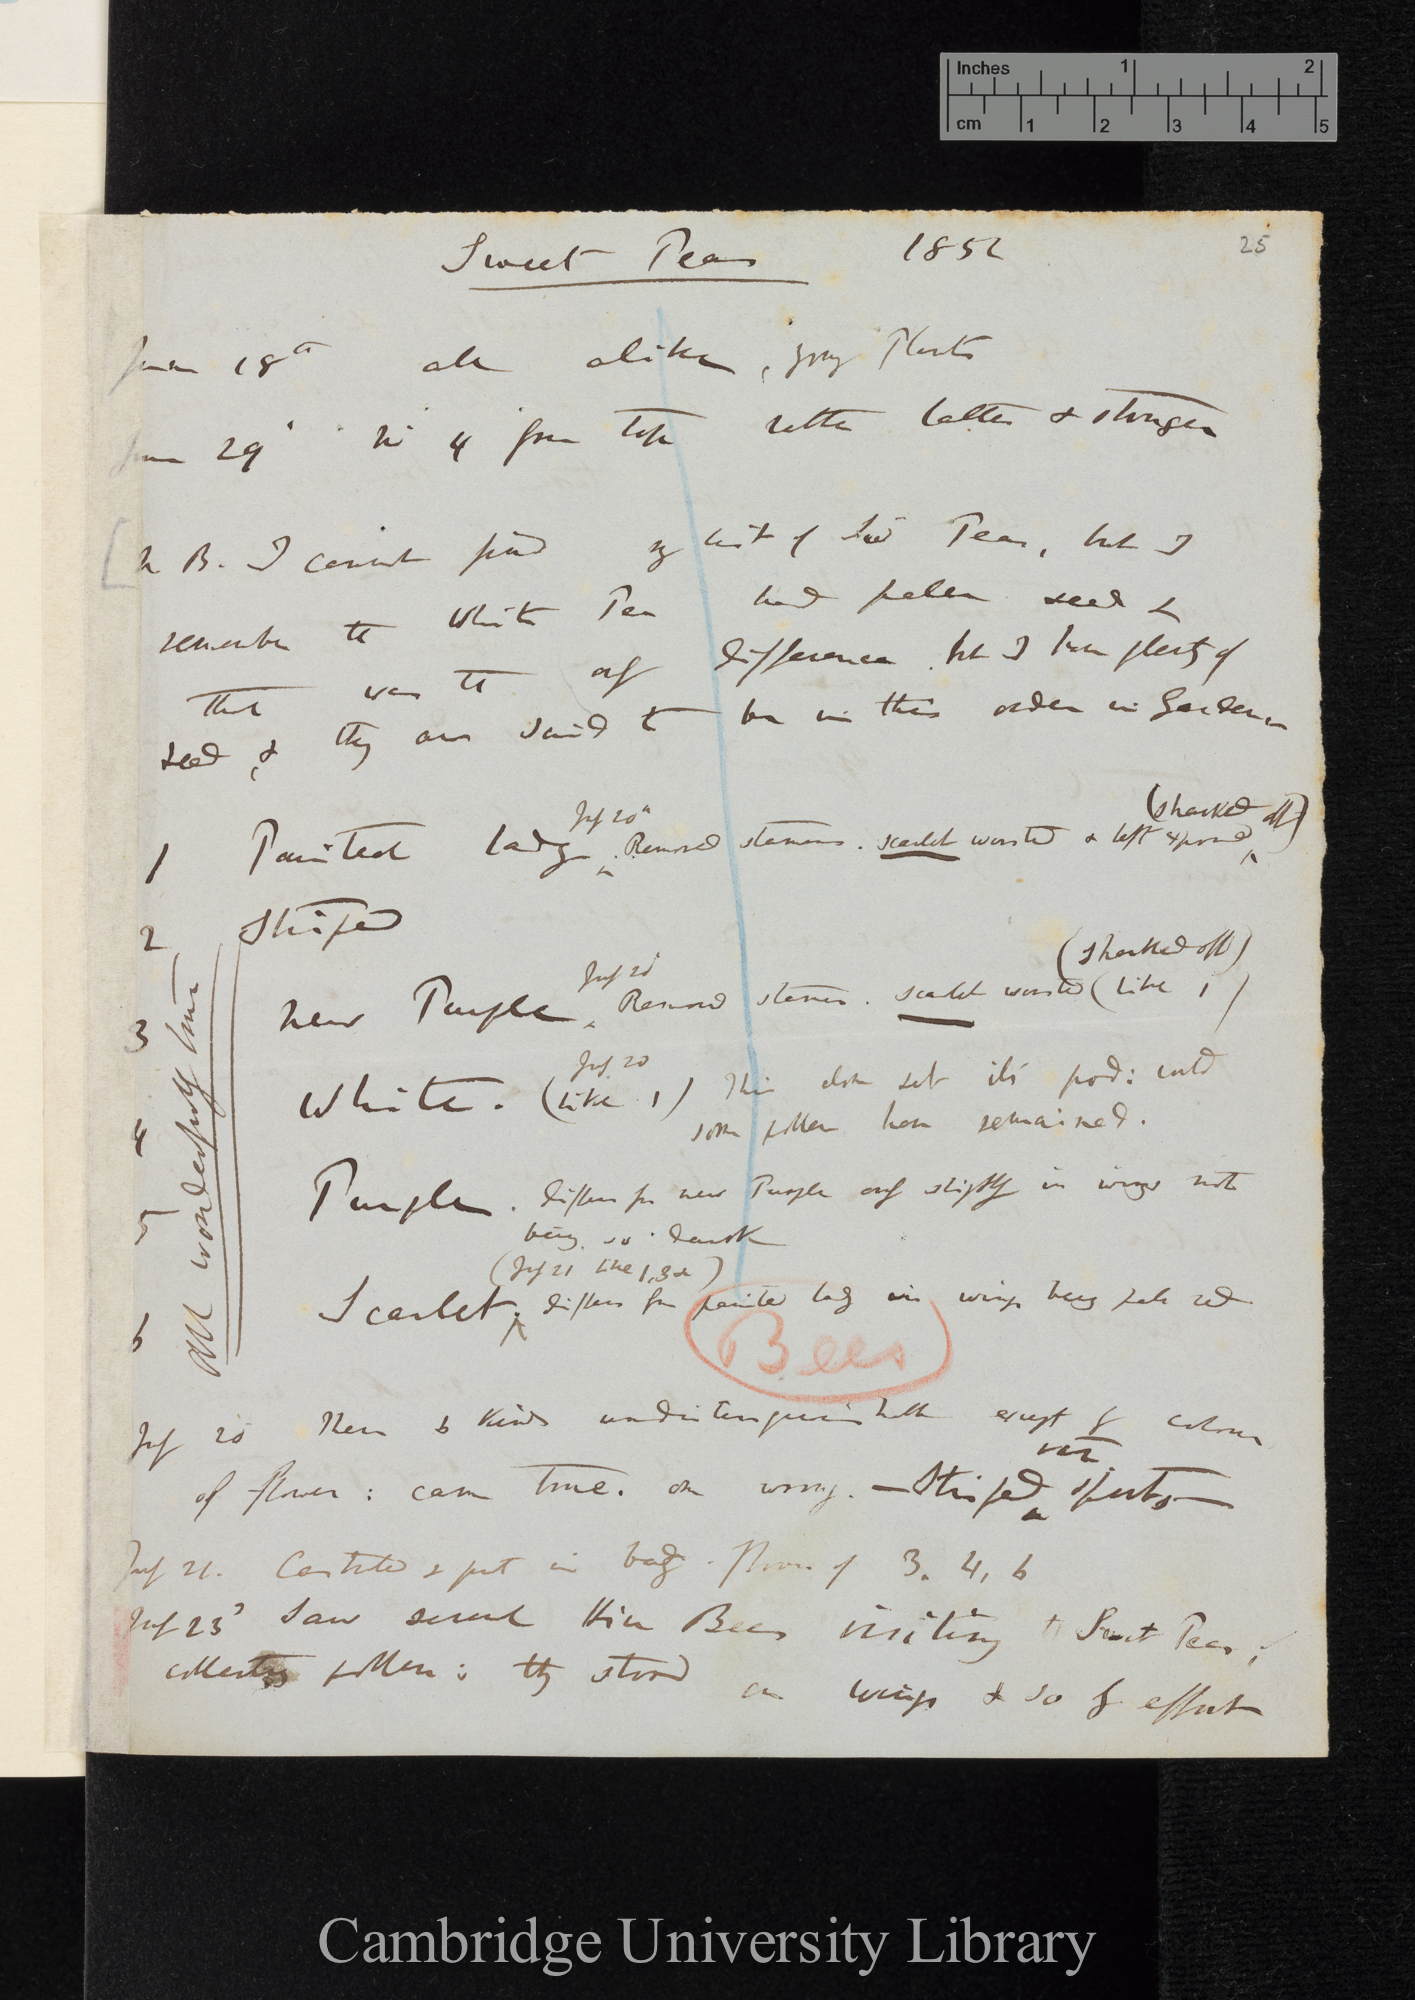 Inches 1 2
cm 1 2 3 4 5
25
Sweet Peas 1852
June 18th all alike, young Plants
June 29th No 4 from top rather taller & stronger
N B. I cannot find my list of Sweet Peas, but I
remember the White Pea had paler seed &
that was the only difference, but I have plenty of
seed, & they are said to be in this order in Garden
(shanked off)
July 20th
1 Painted Lady. Removed stamens. scarlet worsted & left exposed
2 Striped
(shanked off)
July 20
3 New Purple. Removed stamens. scarlet worsted (like 1)
July 20
4 White. (like 1) This alone set its pod: could
some pollen have remained.
5 Purple. differs from new Purple only slightly in wings not
being so dark
(July 21 like 1, 3 &)
6 Scarlet. differs from painted lady in wings being pale red
All wonderfully true
Bees
July 20 These 6 kinds undistinguishable except by colour
var.
of flower: came true. one wrong. — Striped sports —
July 21. Castrated & put in bag. flowers of 3, 4, 6
July 23d Saw several Hive Bees visiting Sweet Peas;
collecting pollen: they stood on wings & so by effort
Cambridge University Library